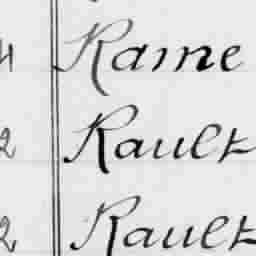 Rame
2 Rault
2 Rault